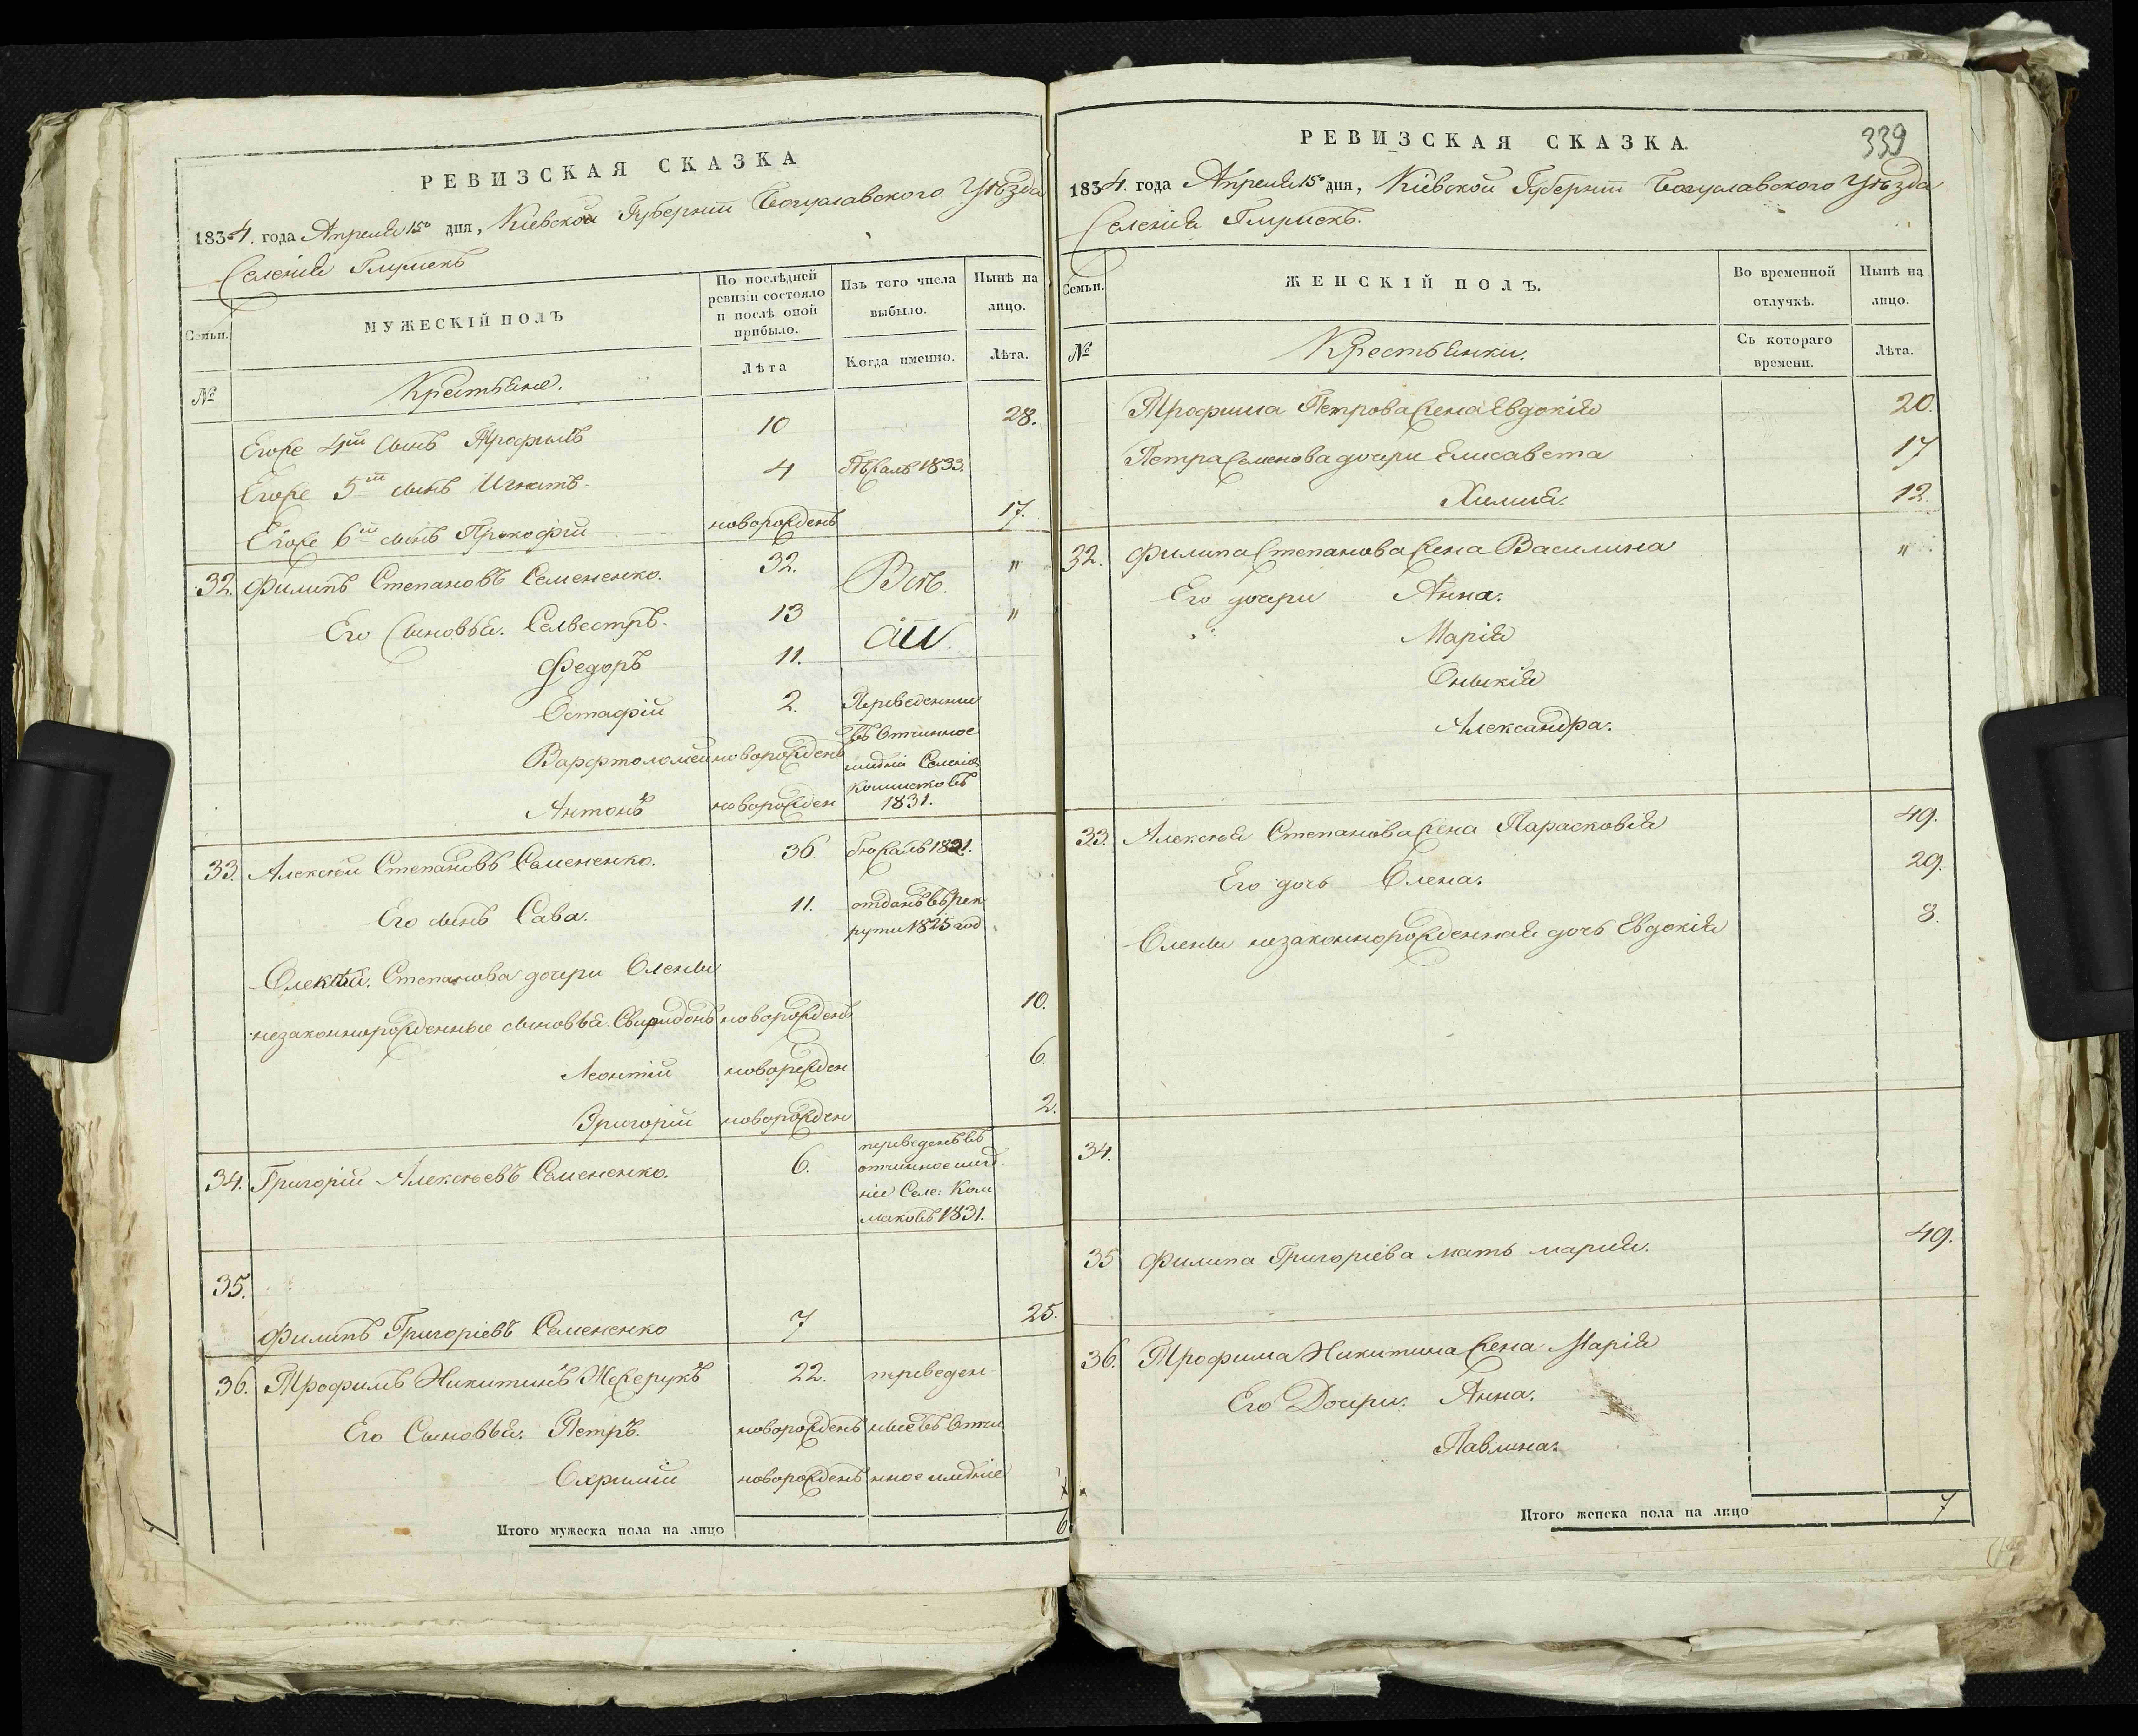 РЕВИЗСКАЯ СКАЗКА
1834. года Апреля 15го дня, Кіевской Губерніи Богуславского Уѣзда
Селенія
Семьи.
МУЖЕСКІЙ ПОЛЪ
По послѣдней ревизіи состояло и послѣ оной прибыло.
Изъ того числа выбыло.
Нынѣ на лицо.
№
Крестьяне.
Лѣта
Когда именно.
Лѣта.
Егоже 4й сынъ Трофимъ 10 28.
Егоже 5й сынъ Игнатъ. 4 бѣжалъ 1833.
Егоже 6й сынъ Прокофій новорожденъ 17.
32. Филипъ Степановъ Семененко. 32. Всѣ "
Его Сыновья. Селвестръ. 13 "
Федоръ 11.
Остафій 2. Переведенны
Варфтоломей новорожденъ въ отчинное
имѣніе Селенія
Антонъ новорожден 1831.
33. Алексѣй Степановъ Семененко. 36. бѣжалъ 1821.
Его сынъ Сава. 11. отданъ въ рек
руты 1825 год
Олексѣя. Степанова дочери Олены
незаконнорожденные сыновья. Свиридонъ новорожденъ 10.
Леонтій новорожден 6.
Григорій новорожден 2.
34. Григорій Алексѣевъ Семененко. 6. переведенъ въ
отчинное имѣ
ніе Селе: Ком
маковъ 1831.
35.
Филипъ Григоріевъ Семененко 7 25.
36. Трофимъ Никитинъ 22. переведен
Его Сыновья. Петръ. новорожденъ ные въ отчи
Охримій новорожденъ нное имѣніе
Итого мужеска пола на лицо 6
339
РЕВИЗСКАЯ СКАЗКА.
1834. года Апреля 15го дня, Кіевской Губерніи Богуславского Уѣзда
Селенія
Семьи.
ЖЕНСКІЙ ПОЛЪ.
Во временной отлучкѣ.
Нынѣ на лицо.
№
Крестьянки.
Съ котораго времени.
Лѣта.
Трофима Петрова жена Евдокія 20.
Петра Семенова дочери Елисавета 17
Химия. 12.
32. Филипа Степанова жена Василина "
Его дочери Анна.
Марія
Александра.
33. Алексѣя Степанова жена Парасковія 49.
Его дочь Олена. 29.
Олены незаконнорожденная дочь Евдокія 8.
34.
35 Филипа Григоріева мать мария. 49.
36. Трофима Никитина жена Марія
Его Дочери. Анна.
Павлина.
Итого женска пола на лицо 7